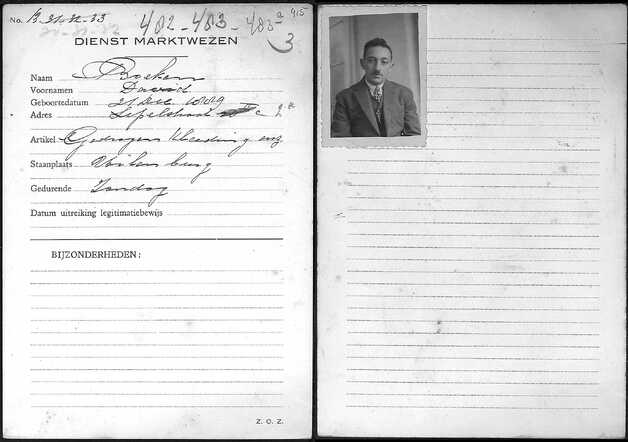 No. B. 31-32-33 482-483-483ª 415
3
DIENST MARKTWEZEN
Naam Boeken
Voornamen David
Geboortedatum 21 Dec.
Adres
Artikel Gedragen kleeding enz
Staanplaats Uilenburg
Gedurende Zondag
Datum uitreiking legitimatiebewijs
BIJZONDERHEDEN:
Z. O. Z.